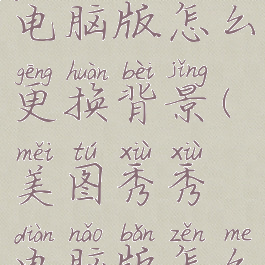 电脑版怎么
gēng huàn bèi jǐng
更换背景(
měi tú xiù xiù
美图秀秀
diàn nǎo bǎn zěn me
电脑版怎么